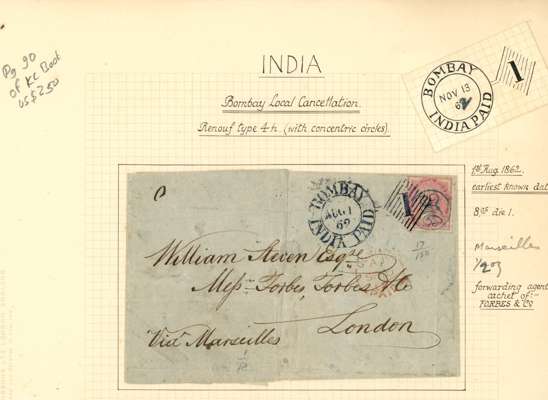 INDIA
Bombay Local Cancellation.
Renouf type 4h. (with concentric circles).
Pg 90
of KC Book
US$250
BOMBAY
NOV 13
62
INDIA PAID
1
1st Aug 1862.
earliest known dat
8ps die 1.
Marseilles
forwarding agent
cachet of:-
FORBES & Co
BOMBAY
AUG 1
62
INDIA PAID
1
William Steven Esqre
Messrs Forbes, Forbes & Co
London
Via Marseilles